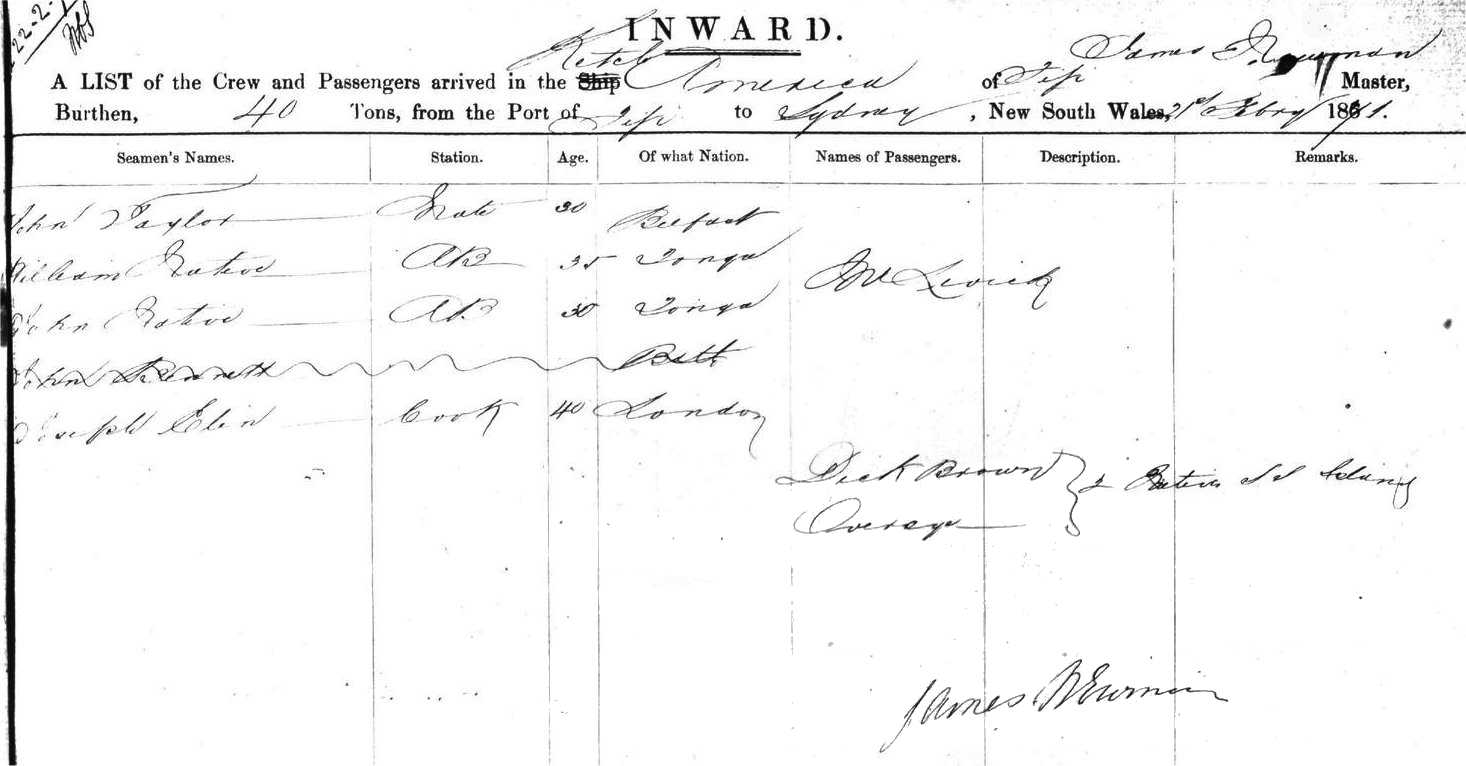 22-2-
INWARD.
Ketch James Newman
A LIST of the Crew and Passengers arrived in the Ship America of Fiji Master,
Burthen, 40 Tons, from the Port of Fiji to Sydney, New South Wales, 21st Febry 1871.
Seamen's Names. Station. Age. Of what Nation. Names of Passengers. Description. Remarks.
John Taylor Mate 30 Belfast
William Native AB 35 Tonga
Mr Levick
John Native AB 30 Tonga
John Bennett
Joseph Elin Cook 40 London
Dick Brown 2 Natives S S Islands
James Newman